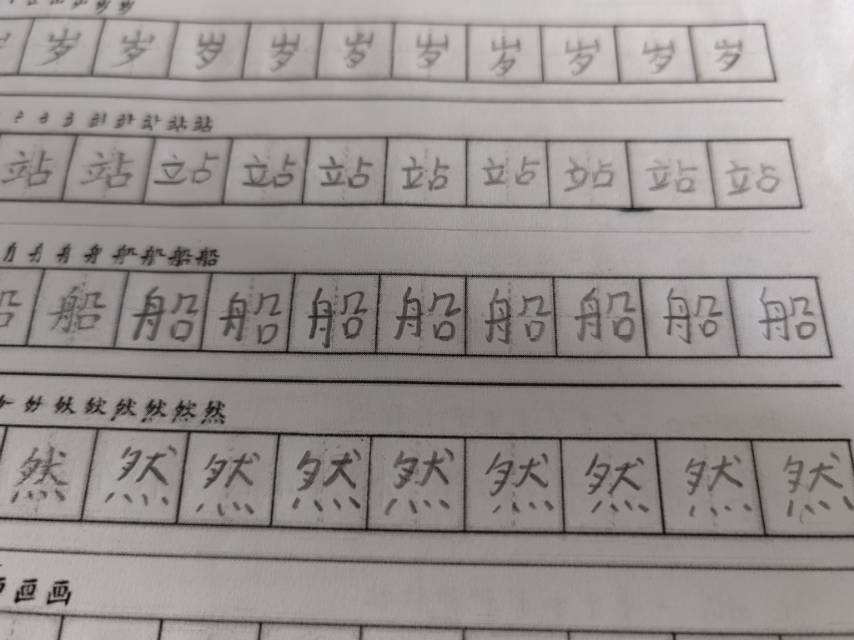 岁 岁 岁 岁 岁 岁 岁 岁 岁 岁
站站
站 站 站 站 站 站 站 站 站 站
舟 船 船 船 船
船 船 船 船 船 船 船 船 船 船
然 然 然 然
然 然 然 然 然 然 然 然 然
画 画